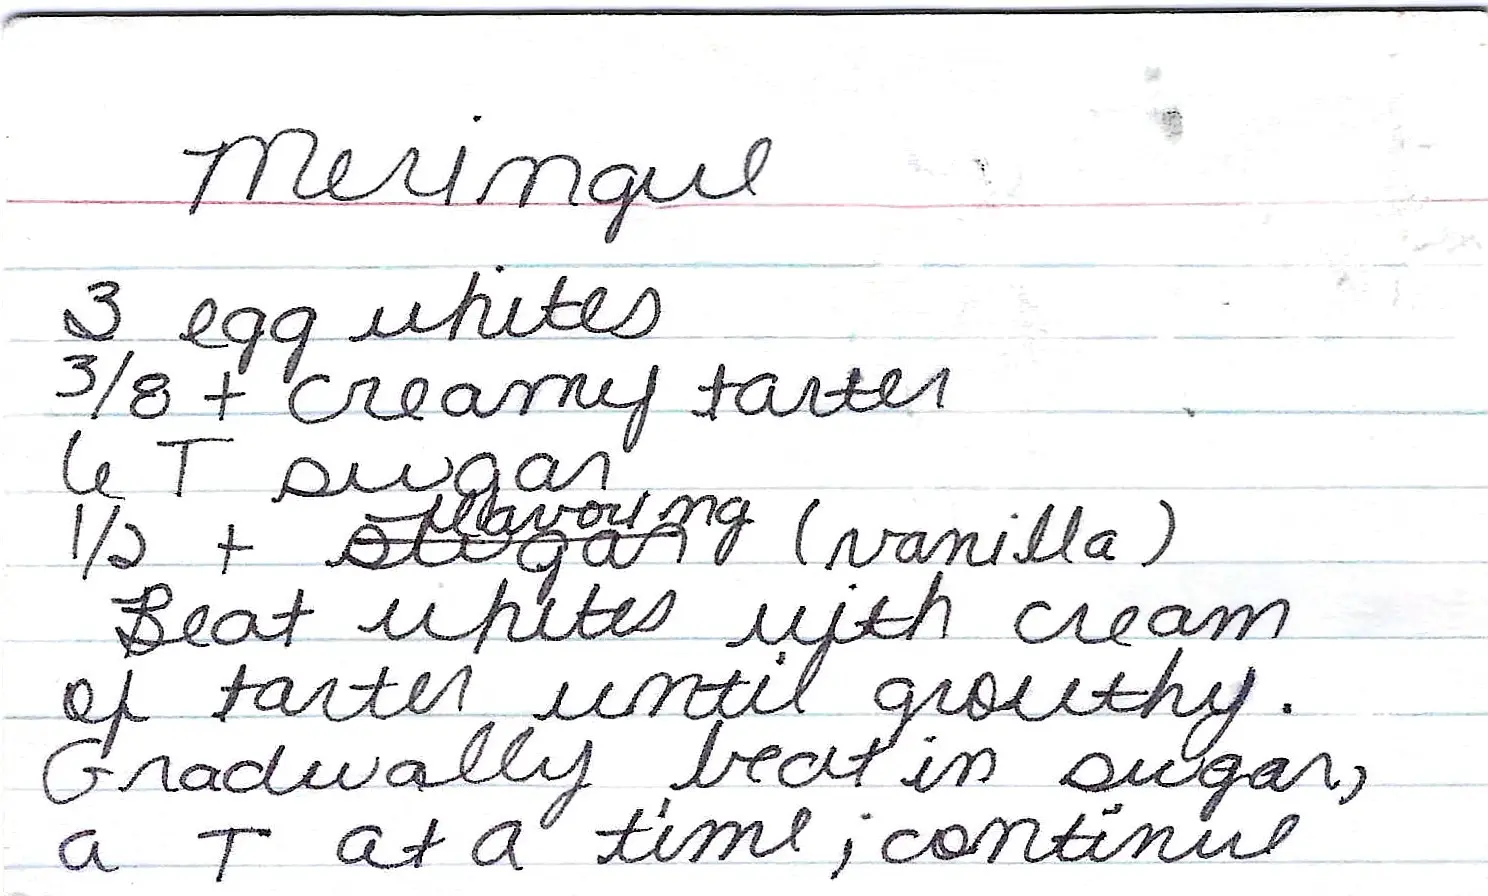 Meringue
3 egg whites
3/8 t creamy tarter
6 T sugar
1/2 t flavoring (vanilla)
Beat whites with cream
of tarter until grouthy.
Gradually beat in sugar,
a T at a time; continue